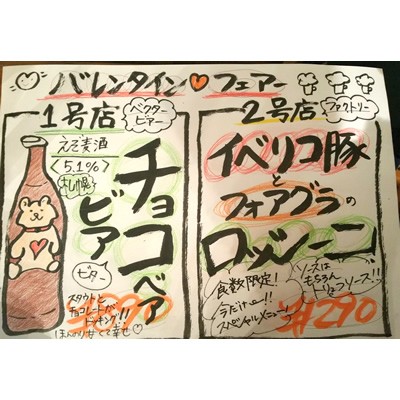 バレンタイン♥フェアー
1号店
ベクター
ビアー
えぞ麦酒
〈5.1%〉
札幌
チョコベア
ビア
ビター
スタウトと
チョコレートが
ドッキング!!
ほんのり甘くて幸せ♡
2号店
ファクトリー
イベリコ豚
と
フォアグラの
ロメシーニ
食数限定!
今だけー!!
スペシャルメニュー!
ソースは
もちろん
トリュフソース!!
¥1290